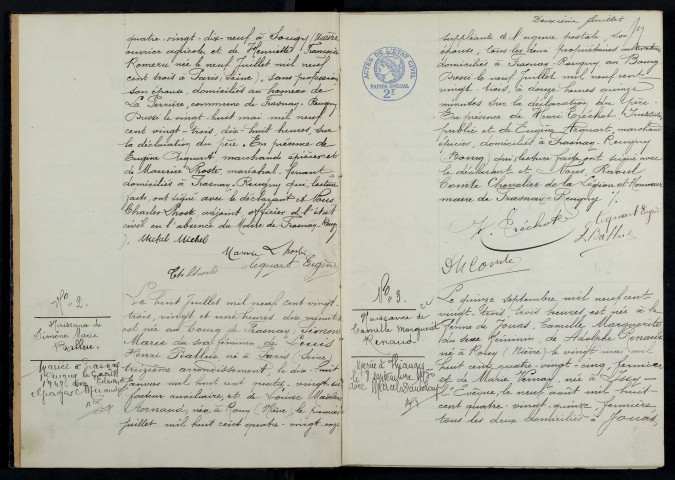 quatre-vingt-dix-neuf à Sougy (Nièvre
ouvrier agricole, et de Henriette Françoise
Romeru née le neuf Juillet mil neuf
cent trois à Paris, (Seine), sans profession
son épouse, domiciliés au hameau de
La Perrière, commune de Trasnay-Reugny
Dressé le vingt-huit mai mil neuf
cent vingt-trois, dix-huit heures, sur
la déclaration du père. En présence de
Eugène Lequart marchands épicier et
de Maurice Phoste, maréchal-ferrant
domiciliés à Trasnay-Reugny qui, lecture
faite, ont signé avec le déclarant et Nous
Charles Phoste, adjoint, officier de l'état
civil en l'absence du Maire de Trasnay-Reugny
Michel Michel
Lequart Eugène
No 2.
Naissance de
Simone Marie
Ballue
Le huit Juillet mil neuf cent vingt-
trois, vingt et une heures dix minutes
est née au bourg de Trasnay, Simone
Marie du sexe féminin de Louis
Henri Ballue né à Paris, Seine,
treizième arrondissement, le dix-huit
facteur auxiliaire, et de Louise
née à Rouy (Nièvre), le premier
juillet mil huit cent quatre-vingt-onze
Deuxième feuillet
ACTES DE L'ETAT CIVIL
PAPIER SPECIAL
2F
suppléante à l'agence postale, son
épouse, tous les deux propriétaires
domiciliés à Trasnay-Reugny au Bourg
Dressé le neuf Juillet mil neuf cent
vingt-trois, à douze heures quinze
minutes sur la déclaration du Père.
En présence de Henri Créchot, Instituteur
public et de Eugène Lequart, marchand
épicier, domiciliés à Trasnay-Reugny
(Bourg) qui, lecture faite ont signé avec
le déclarant et Nous, Raoul
Comte Chevalier de la Légion d'Honneur
maire de Trasnay-Reugny.
H. Créchot
Lequart Eugène
L Ballue
No 3.
Naissance de
Camille Marguerite
Renaud
Le quinze septembre mil neuf cent
vingt-trois, trois heures, est née à la
ferme de Jouas, Camille Marguerite
du sexe féminin de Adolphe Renaud
né à Rouy (Nièvre) le vingt mai mil
huit cent quatre-vingt-cinq, fermier
et de Marie Vernay, née à Issy
l'Evêque, le neuf août mil huit
cent quatre-vingt-quinze, fermière
tous les deux domiciliés à Jouas,